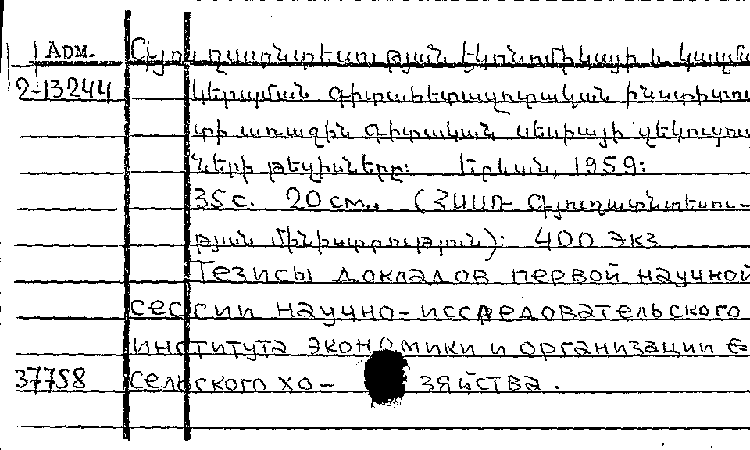 Арм. Գյուղատնտեսության էկոնոմիկայի և կազմա
2-13244 կերպման գիտահետազոտական ինստիտու
տի առաջին գիտական սեսիայի զեկուցու
ների թեզիսները: Երևան, 1959:
35 с. 20 см., (ՀՍՍՌ Գյուղատնտեսու-
թյան մինիստրություն): 400 экз
Тезисы докладов первой научной
сессии научно-исследовательского
института экономики и организации
37758 сельского хо- зяйства.